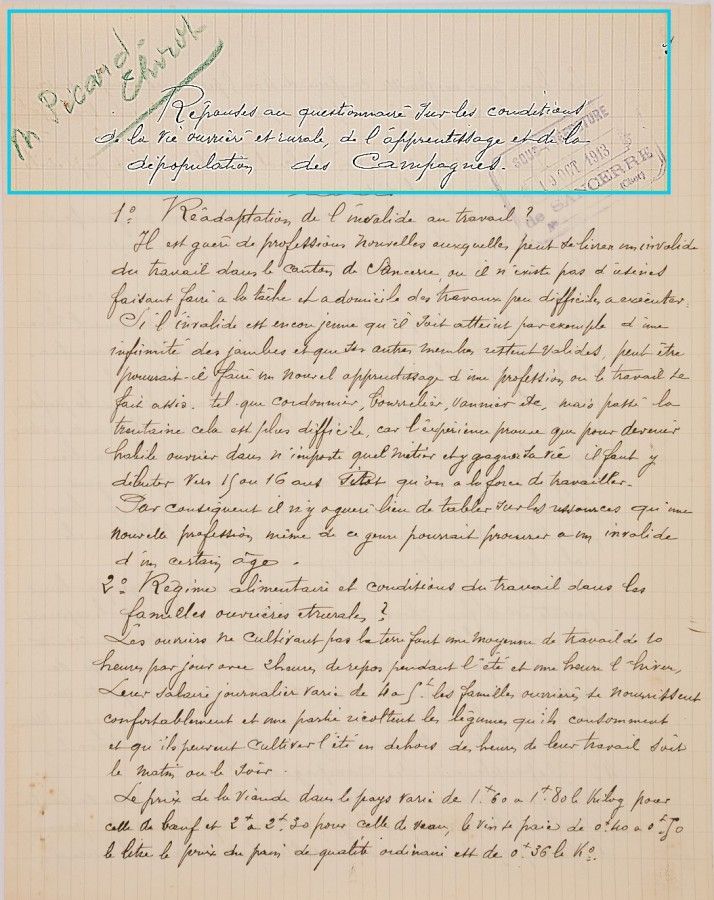 M Picard
Réponses au questionnaire sur les conditions
de la vie ouvrière et rurale, de l'apprentissage et de la
dépopulation des Campagnes.
SOUS-PRÉFECTURE
OCT 1913
de SANCERRE
(Cher)
1° Réadaptation de l'invalide au travail ?
Il est guère de professions nouvelles auxquelles peut se livrer un invalide
du travail dans le canton de Sancerre, ou il n'existe pas d'usines
faisant faire a la tâche et a domicile des travaux peu difficiles a exécuter.
Si l'invalide est encore jeune qu'il soit atteint par exemple d'une
infirmité des jambes et que ses autres membres restent valides, peut être
pourrait-il faire un nouvel apprentissage d'une profession ou le travail se
fait assis. tel que cordonnier, bourrelier, vannier etc, mais passé la
trentaine cela est plus difficile, car l'expérience prouve que pour devenir
habile ouvrier dans n'importe quel métier et y gagner sa vie il faut y
débuter vers 15 ou 16 ans qu'on a la force de travailler.
Par conséquent il n'y a guère lieu de tabler sur les ressources qu'une
nouvelle profession même de ce genre pourrait procurer a un invalide
d'un certain âge.
2° Régime alimentaire et conditions du travail dans les
familles ouvrières et rurales ?
Les ouvriers ne cultivant pas la terre font une moyenne de travail de 10
heures par jour avec 2 heures de repos pendant l'été et une heure l'hiver,
Leur salaire journalier varie de 4 a 5 f. les familles ouvrières se nourrissent
confortablement et une partie récoltent les légumes qu'ils consomment
et qu'ils peuvent cultiver l'été en dehors des heures de leur travail soit
le matin ou le soir.
Le prix de la viande dans le pays varie de 1f60 a 1f80 le Kilog pour
celle de bœuf et 2f a 2f.30 pour celle de veau, le vin se paie de 0f40 a 0f50
le litre le prix du pain de qualité ordinaire est de 0f36 le K°.